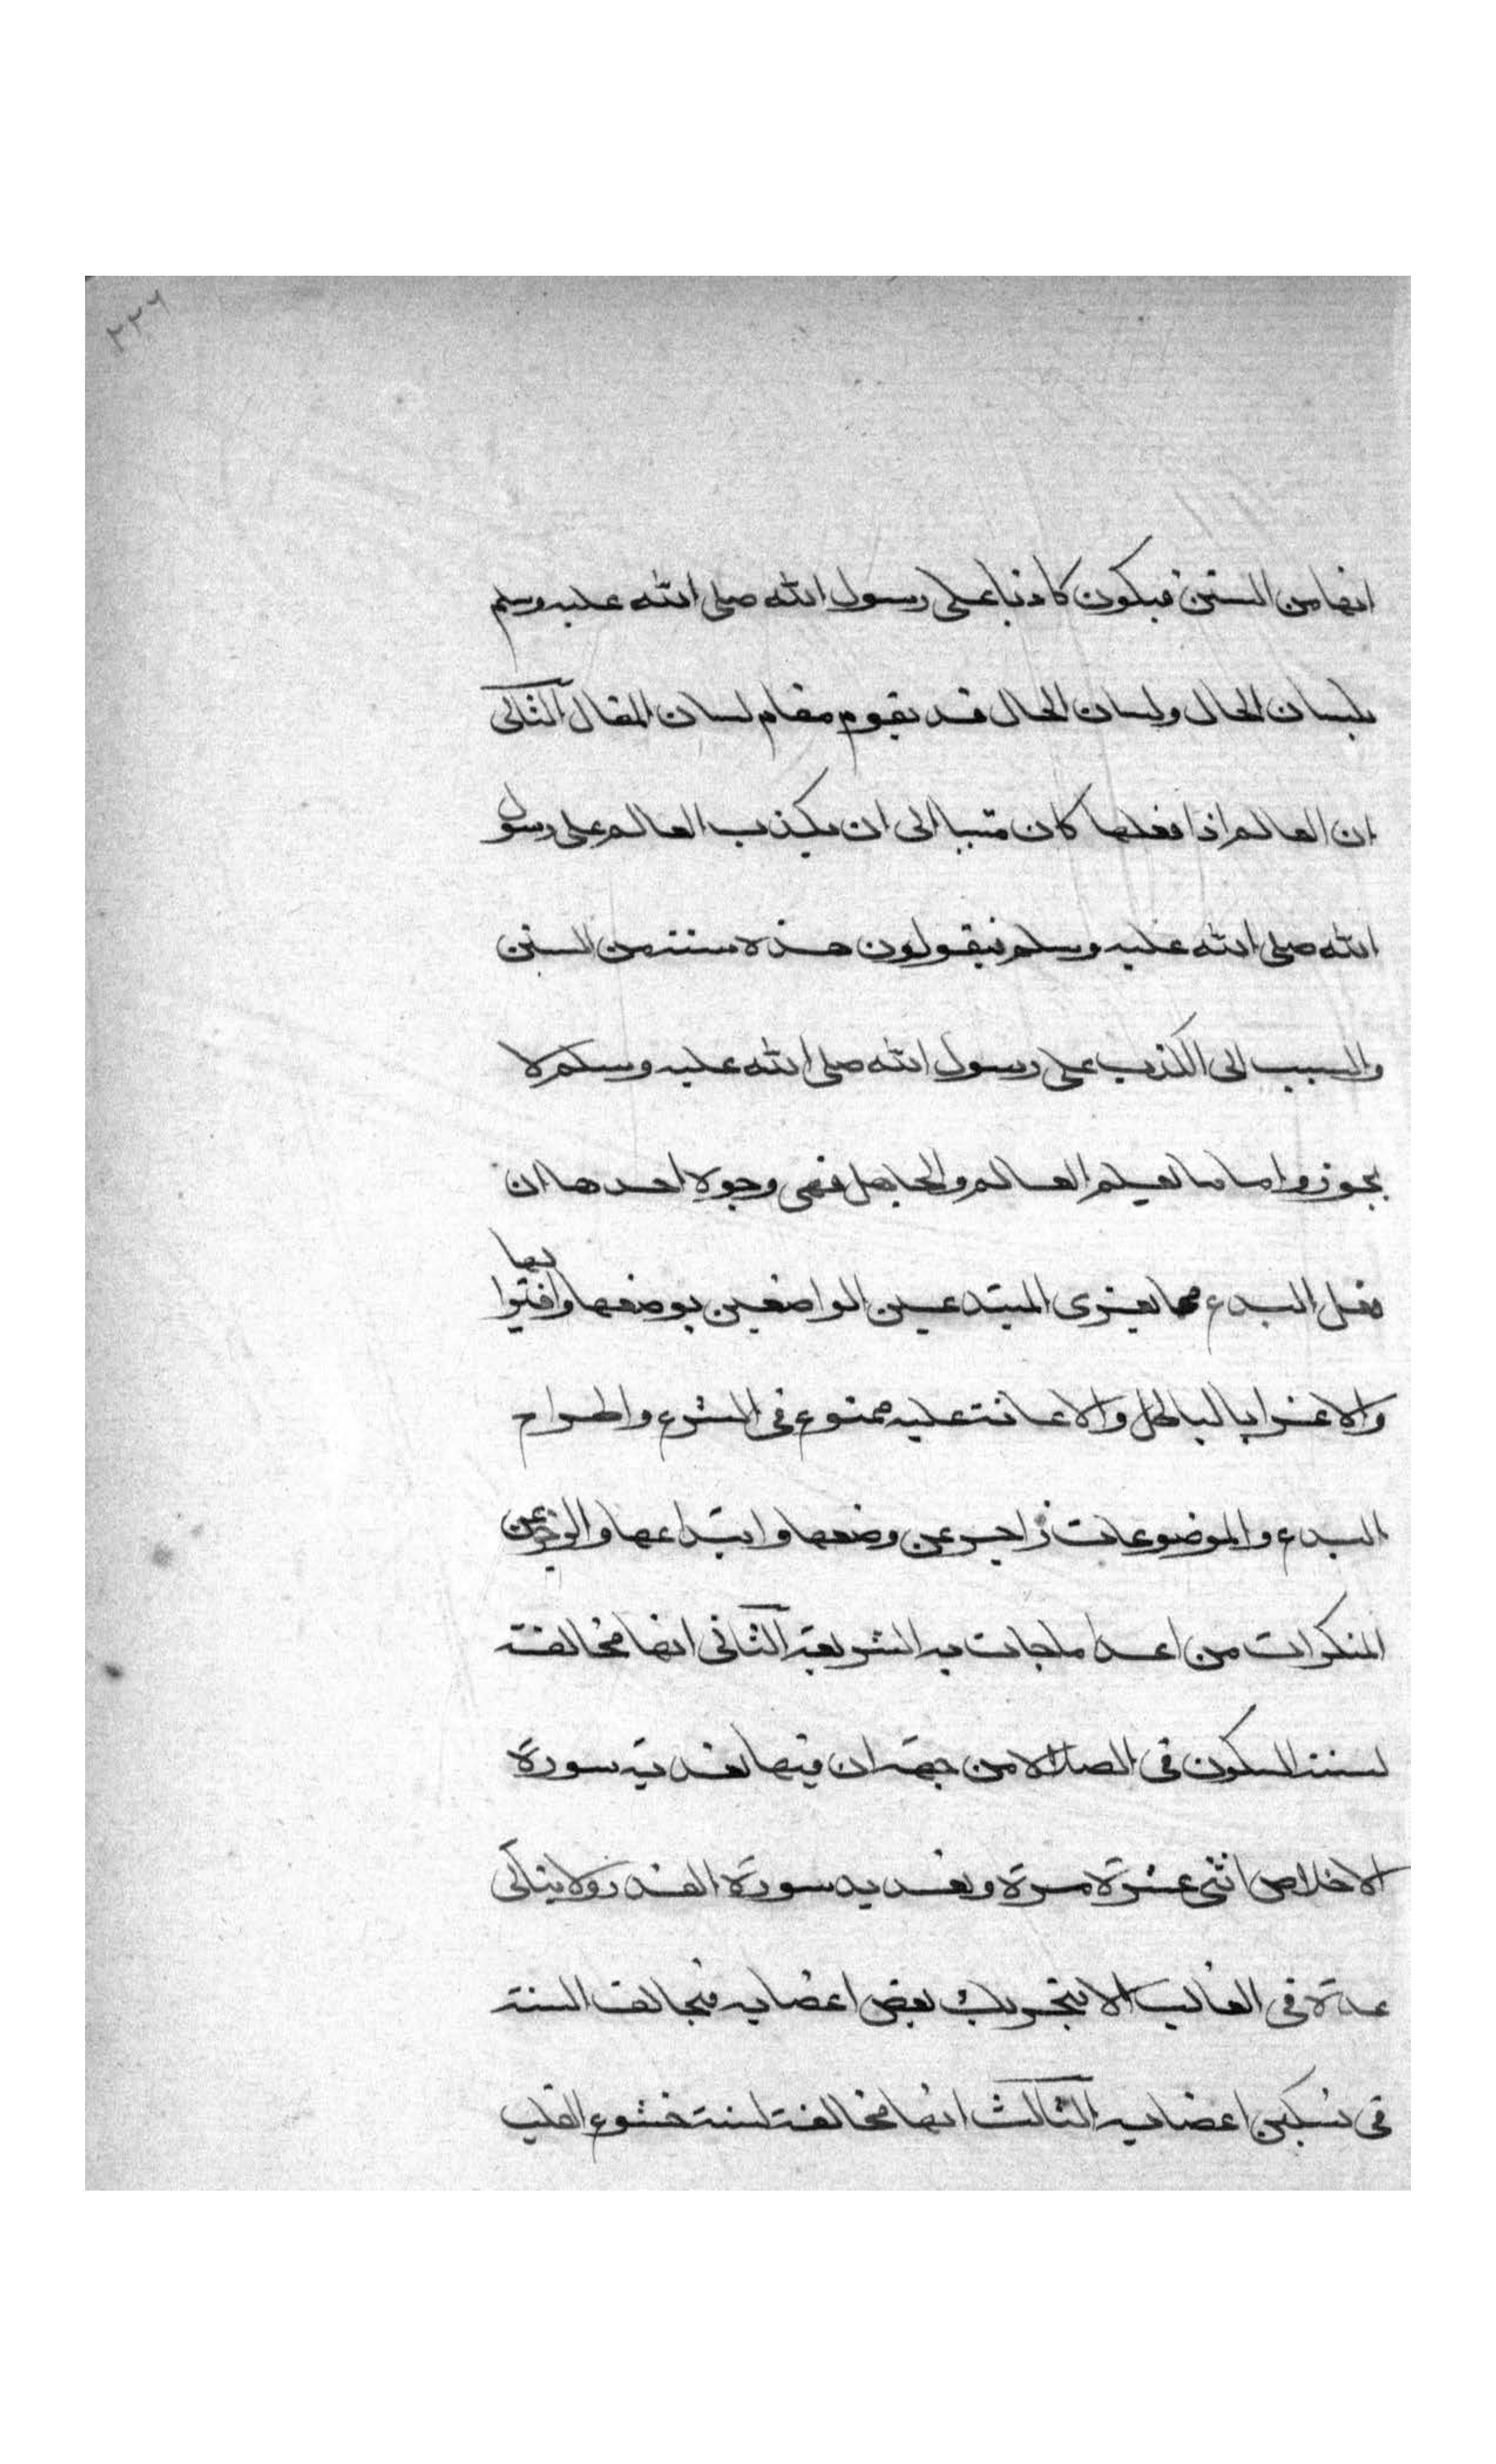 ٢٢٦
انها من السنن فيكون كاذبا على رسول الله صلى الله عليه وسلم
بلسان الحال ولسان الحال قد يقوم مقام لسان المقال الثانى
ان العالم اذا فعلها كان متسببا الى ان يكذب العالم على رسول
الله صلى الله عليه وسلم فيقولون هذه سنة من السنن
والسبب الى الكذب على رسول الله صلى الله عليه وسلم لا
يجوز واما ما يعلم العالم والجاهل فهى وجوه احدها ان
فعل البدع مما يغرى المبتدعين الواضعين بوضعها وافتوا بها
والاغرا بالباطل والاعانة عليه ممنوع فى الشرع واطراح
البدع والموضوعات زاجر عن وضعها وابتداعها والزجر عن
المنكرات من اعلا ماجات به الشريعة الثانى انها مخالفة
لسنة السكون فى الصلاة من جهة ان فيها تعديد سورة
الاخلاص اثنى عشرة مرة وتعديد سورة القدر ولا يتاتى
عده فى الغالب الا بتحريك بعض اعضايه فيخالف السنة
فى تسكين اعضايه الثالث انها مخالفة لسنة خشوع القلب